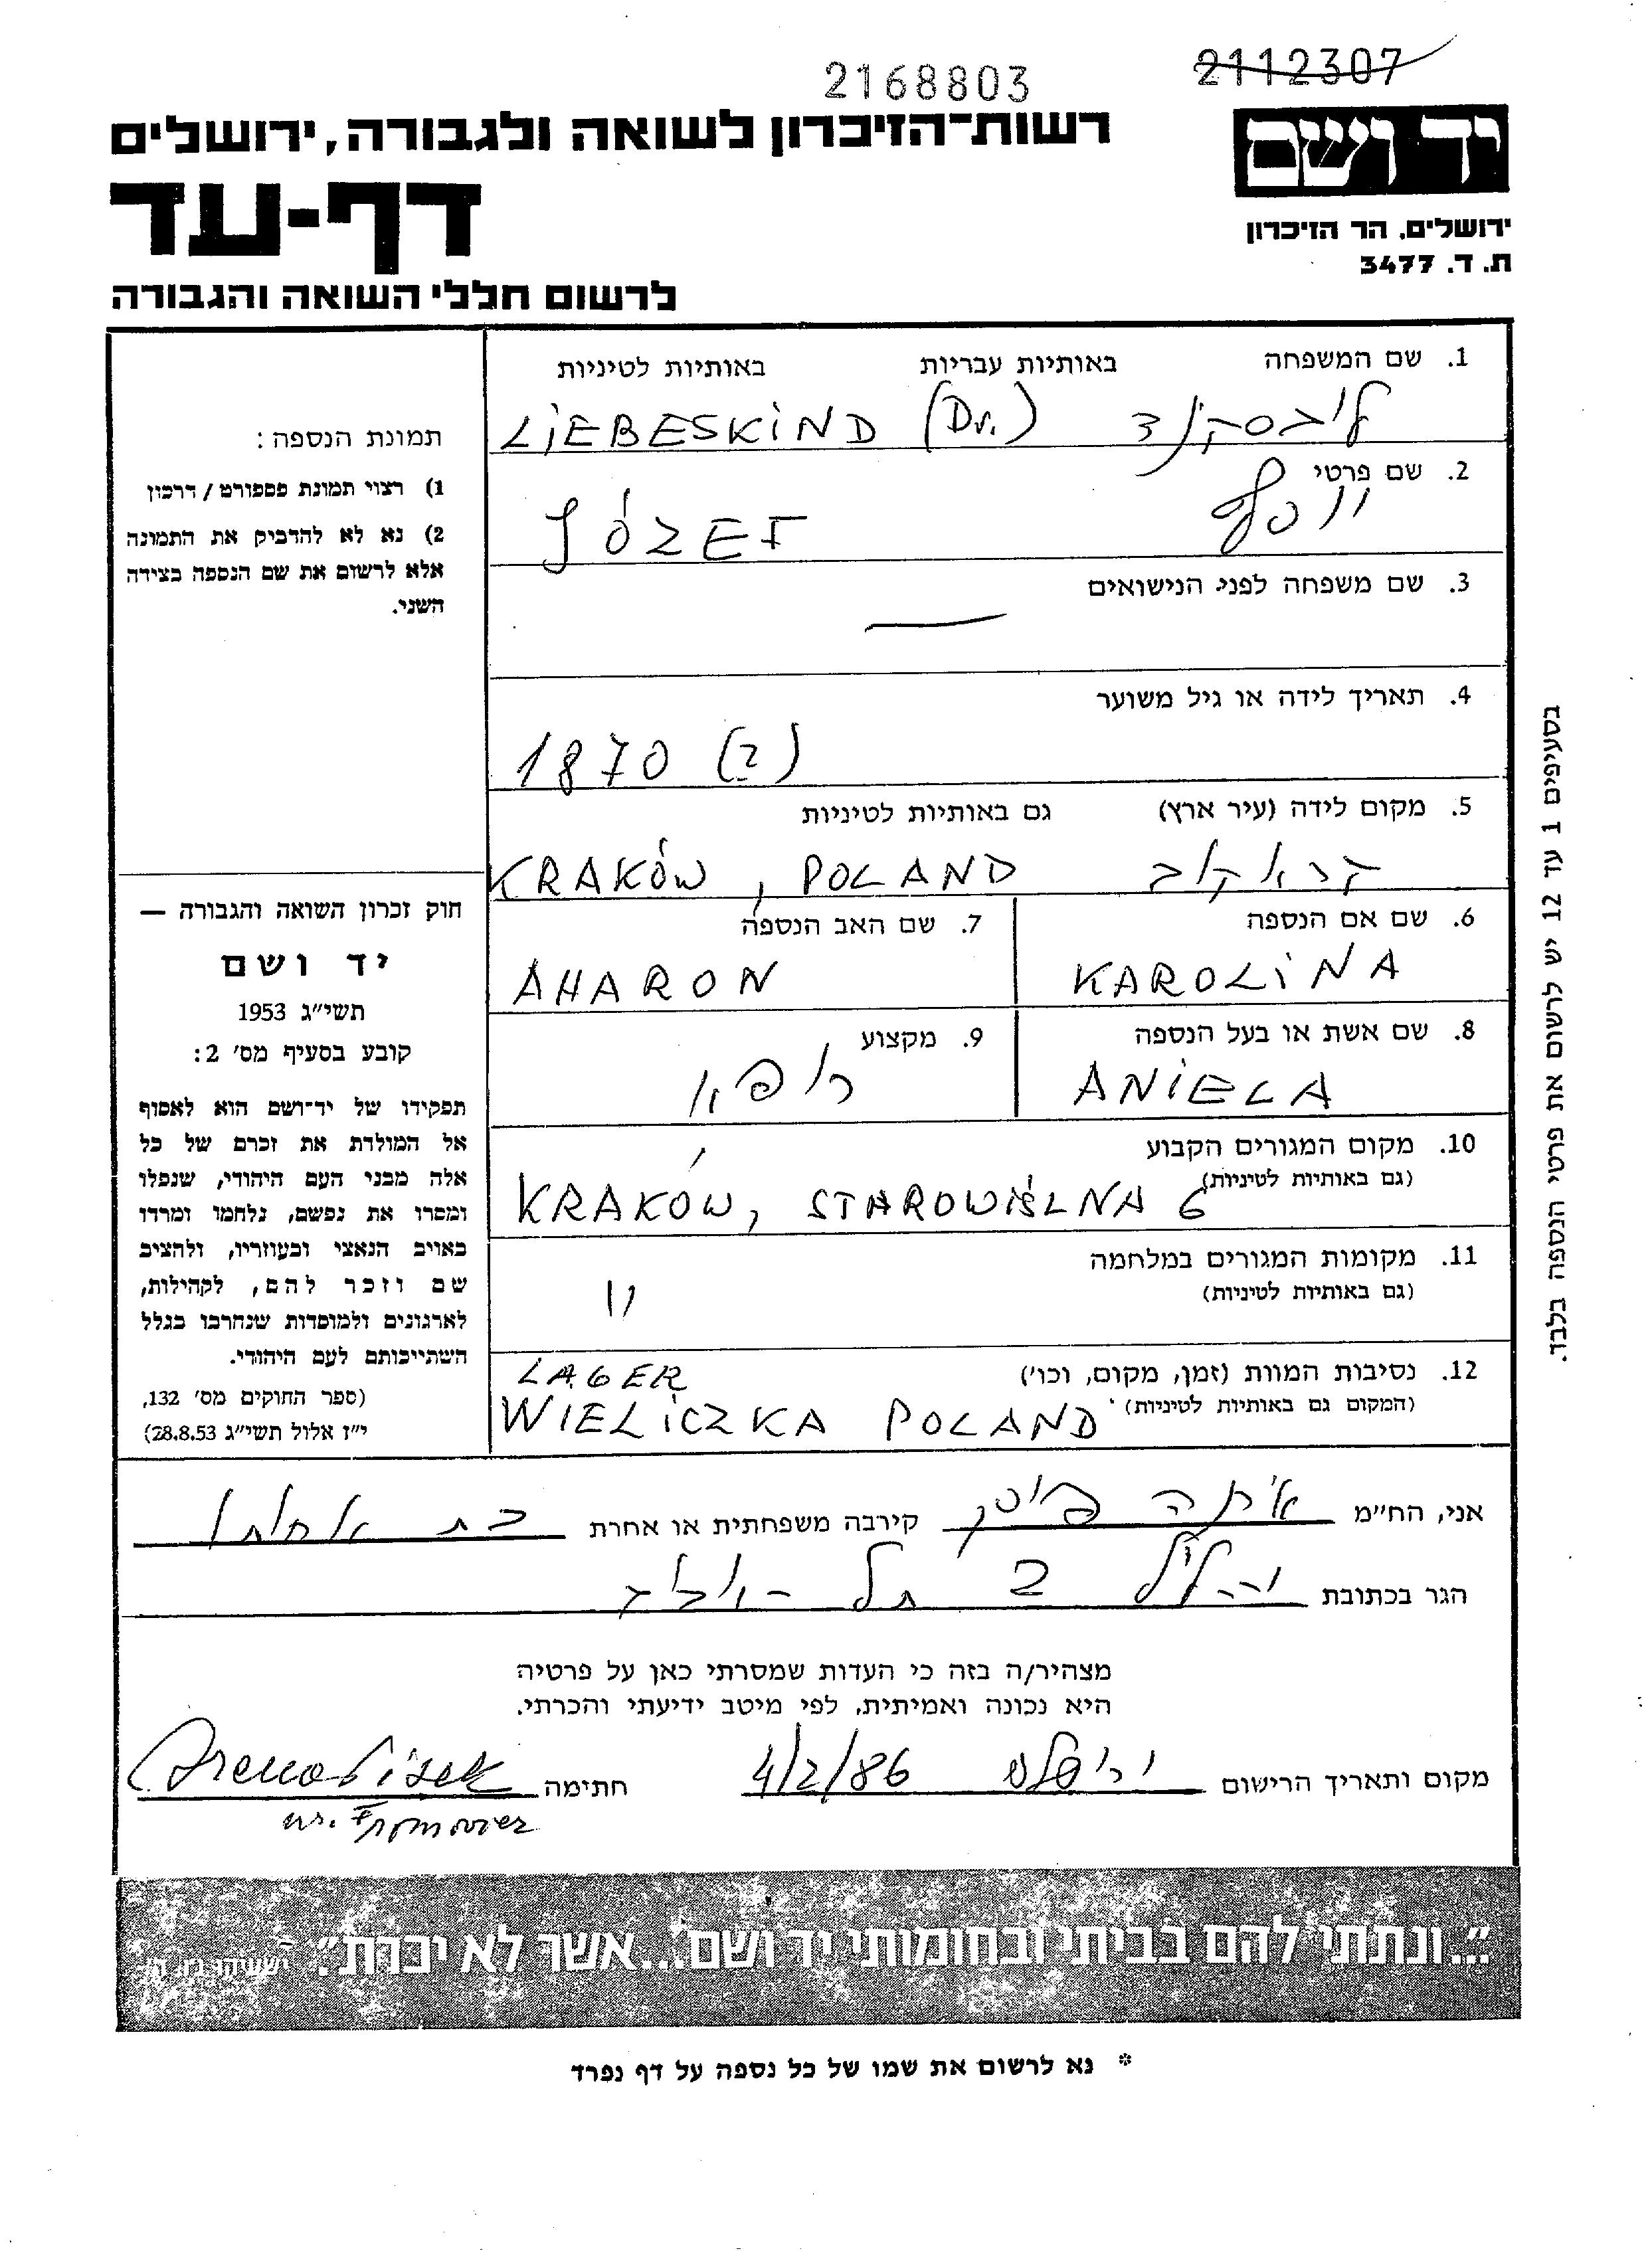 2168803
2112307
רשות-הזיכרון לשואה ולגבורה, ירושלים
יד ושם
דף-עד
ירושלים, הר הזיכרון
ת. ד. 3477
לרשום חללי השואה והגבורה
1. שם המשפחה באותיות עבריות באותיות לטיניות
ליבסקינד LiEBESKiND (Dr.)
2. שם פרטי
יוסף JÓZEF
3. שם משפחה לפני הנישואים
—
4. תאריך לידה או גיל משוער
1870 (?)
5. מקום לידה (עיר ארץ) גם באותיות לטיניות
קראקוב KRAKÓW, POLAND
6. שם אם הנספה 7. שם האב הנספה
KAROLiNA AHARON
8. שם אשת או בעל הנספה 9. מקצוע
ANiELA רופא
10. מקום המגורים הקבוע
(גם באותיות לטיניות)
KRAKÓW, STAROWIŚLNA 6
11. מקומות המגורים במלחמה
(גם באותיות לטיניות)
"
12. נסיבות המוות (זמן, מקום, וכו')
(המקום גם באותיות לטיניות)
LAGER
WIELiCZKA POLAND
תמונת הנספה:
1) רצוי תמונת פספורט / דרכון
2) נא לא להדביק את התמונה
אלא לרשום את שם הנספה בצידה
השני.
חוק זכרון השואה והגבורה —
יד ושם
תשי"ג 1953
קובע בסעיף מס' 2:
תפקידו של יד-ושם הוא לאסוף
אל המולדת את זכרם של כל
אלה מבני העם היהודי, שנפלו
ומסרו את נפשם, נלחמו ומרדו
באויב הנאצי ובעוזריו, ולהציב
שם וזכר להם, לקהילות,
לארגונים ולמוסדות שנחרבו בגלל
השתייכותם לעם היהודי.
(ספר החוקים מס' 132,
י"ז אלול תשי"ג 28.8.53)
בסעיפים 1 עד 12 יש לרשום את פרטי הנספה בלבד.
אני, הח"מ קירבה משפחתית או אחרת בת אחותו
הגר בכתובת
מצהיר/ה בזה כי העדות שמסרתי כאן על פרטיה
היא נכונה ואמיתית, לפי מיטב ידיעתי והכרתי.
מקום ותאריך הרישום ירושלים 4/2/86 חתימה
"...ונתתי להם בביתי ובחומותי יד ושם...אשר לא יכרת". ישעיהו נו, ה
* נא לרשום את שמו של כל נספה על דף נפרד